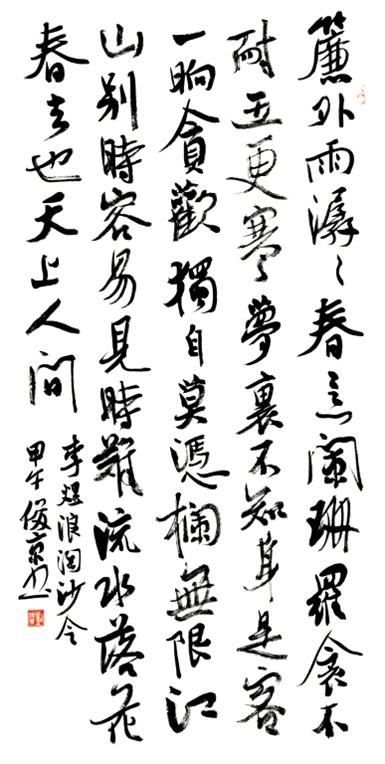 簾外雨潺〻春意闌珊羅衾不
耐五更寒夢裏不知身是客
一晌貪歡獨自莫憑欄無限江
山别時容易見時難流水落花
春去也天上人間
李煜浪淘沙令
甲午俊京书